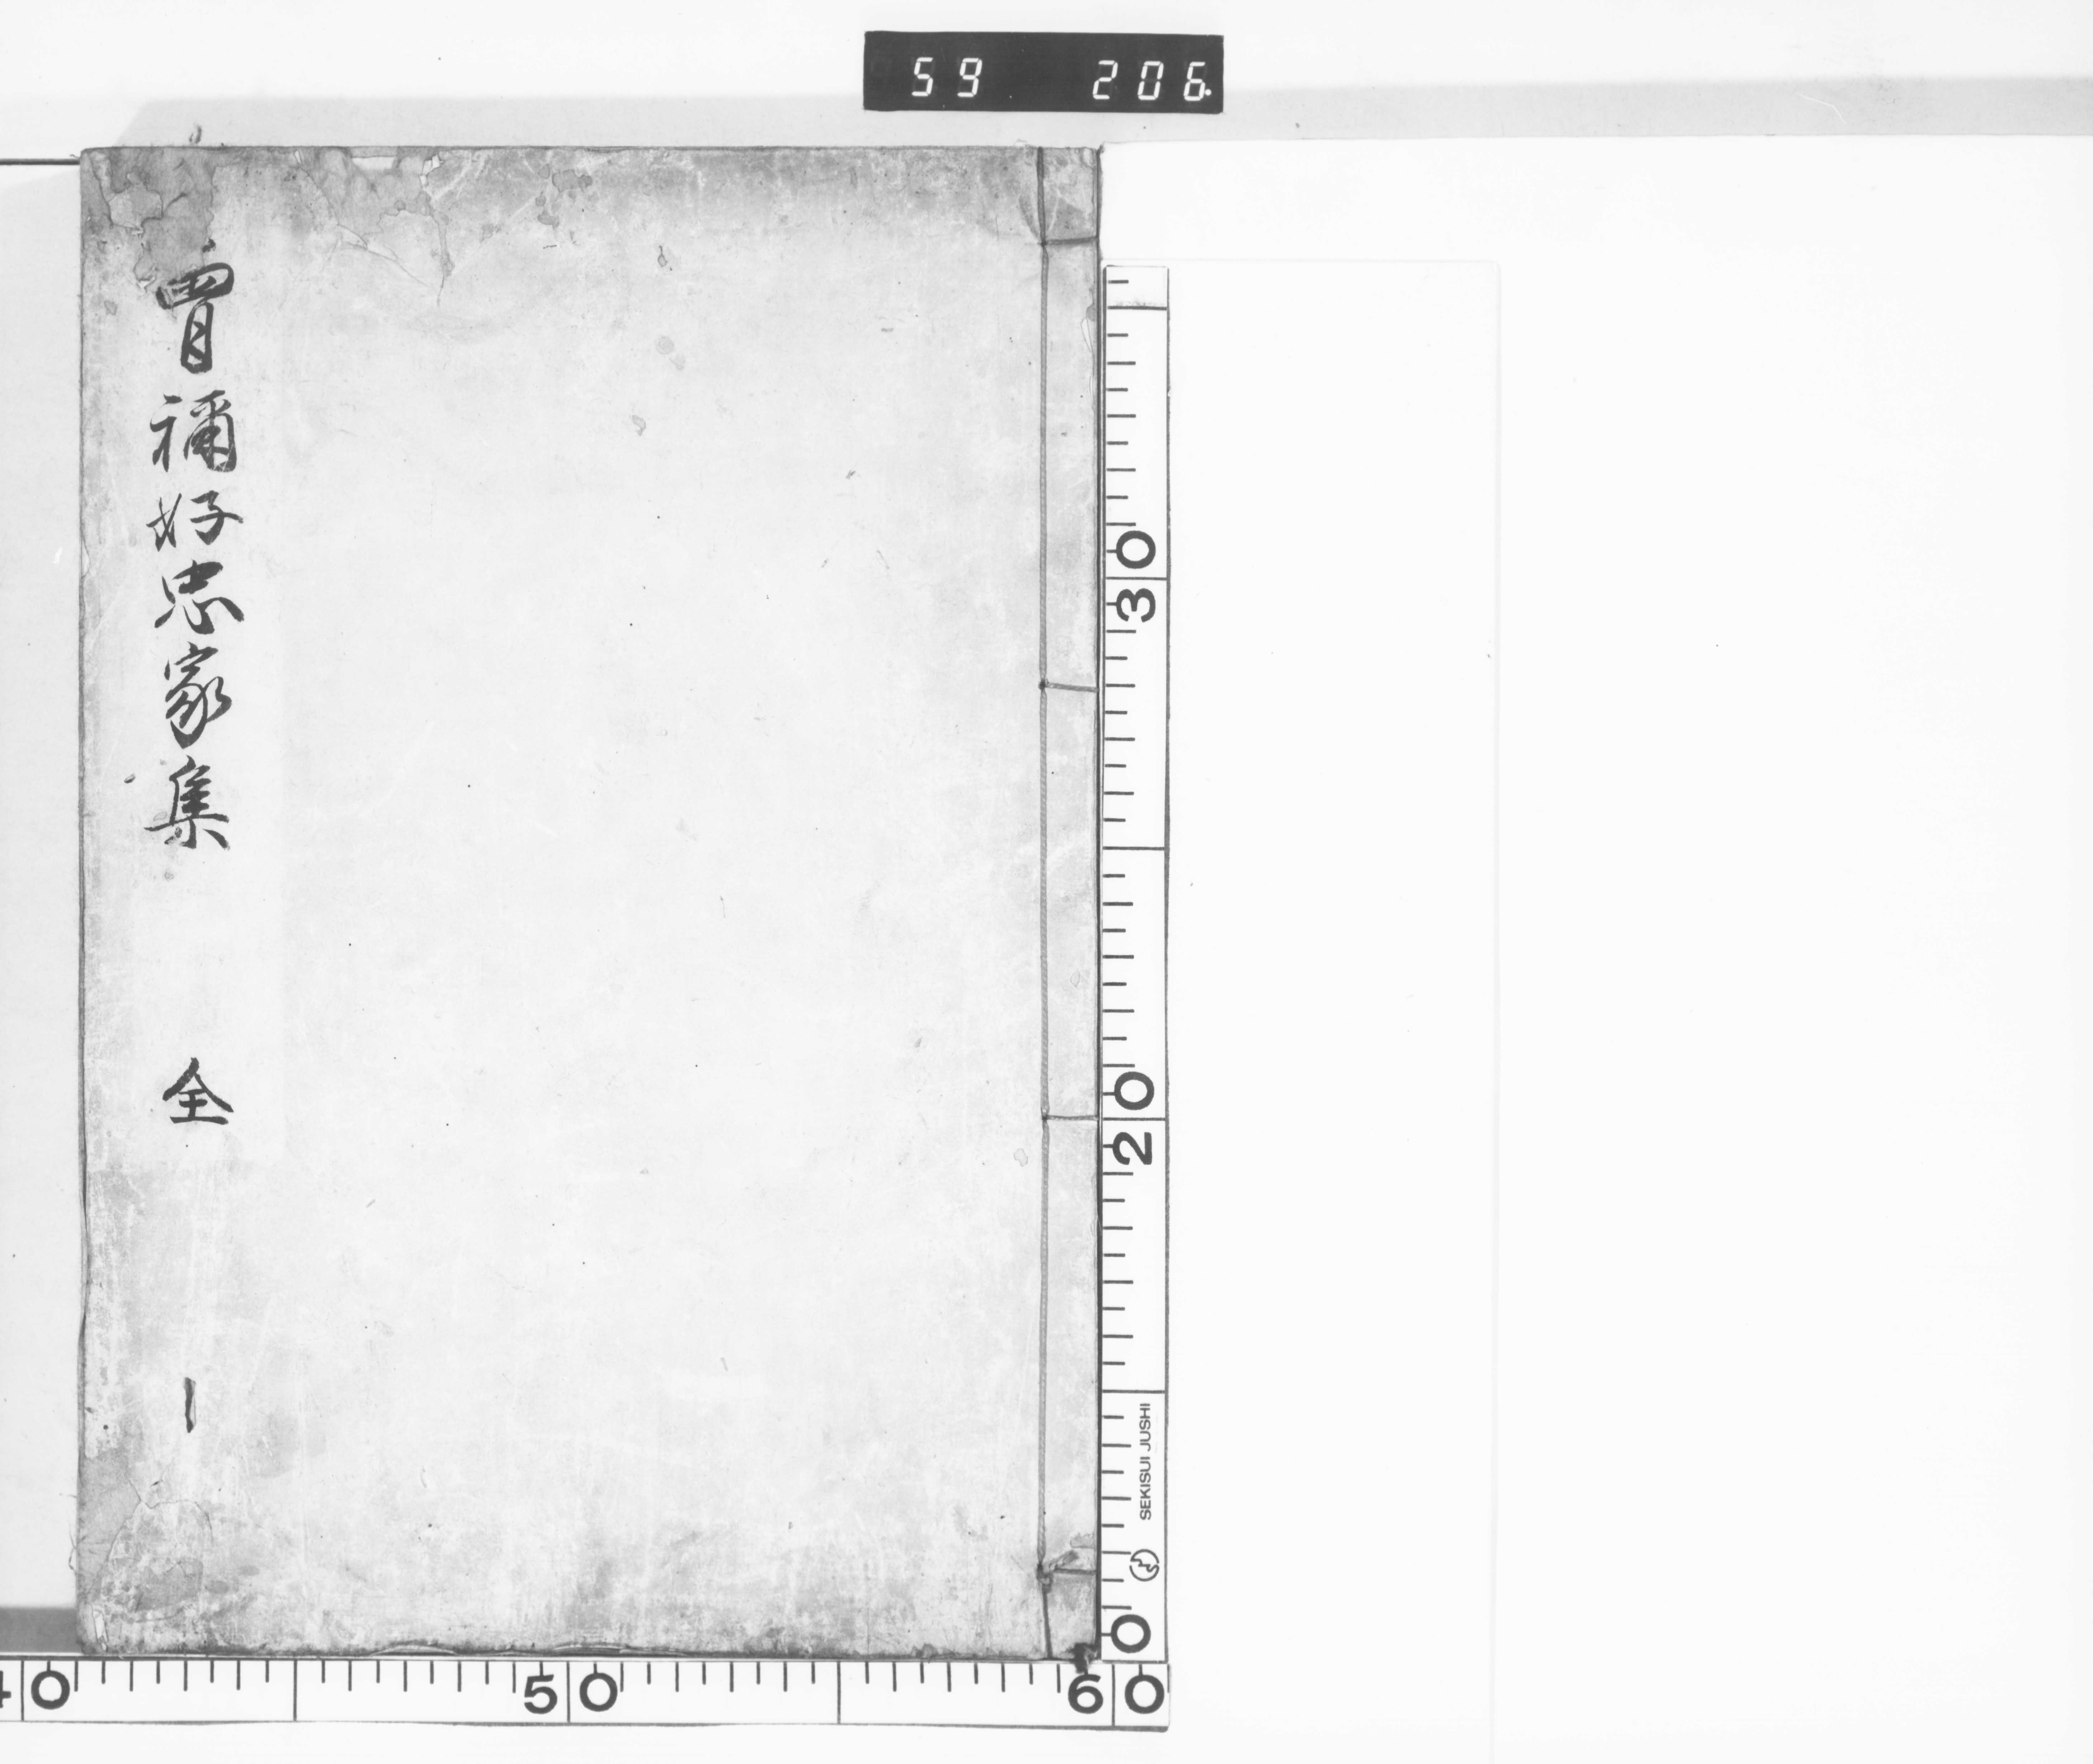 59 206
曽祢好忠家集 全
30
20
SEKISUI JUSHI
0
40 50 60